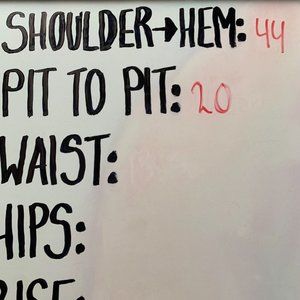 SHOULDER→HEM: 44
PIT TO PIT: 20
WAIST:
HIPS:
RISE: